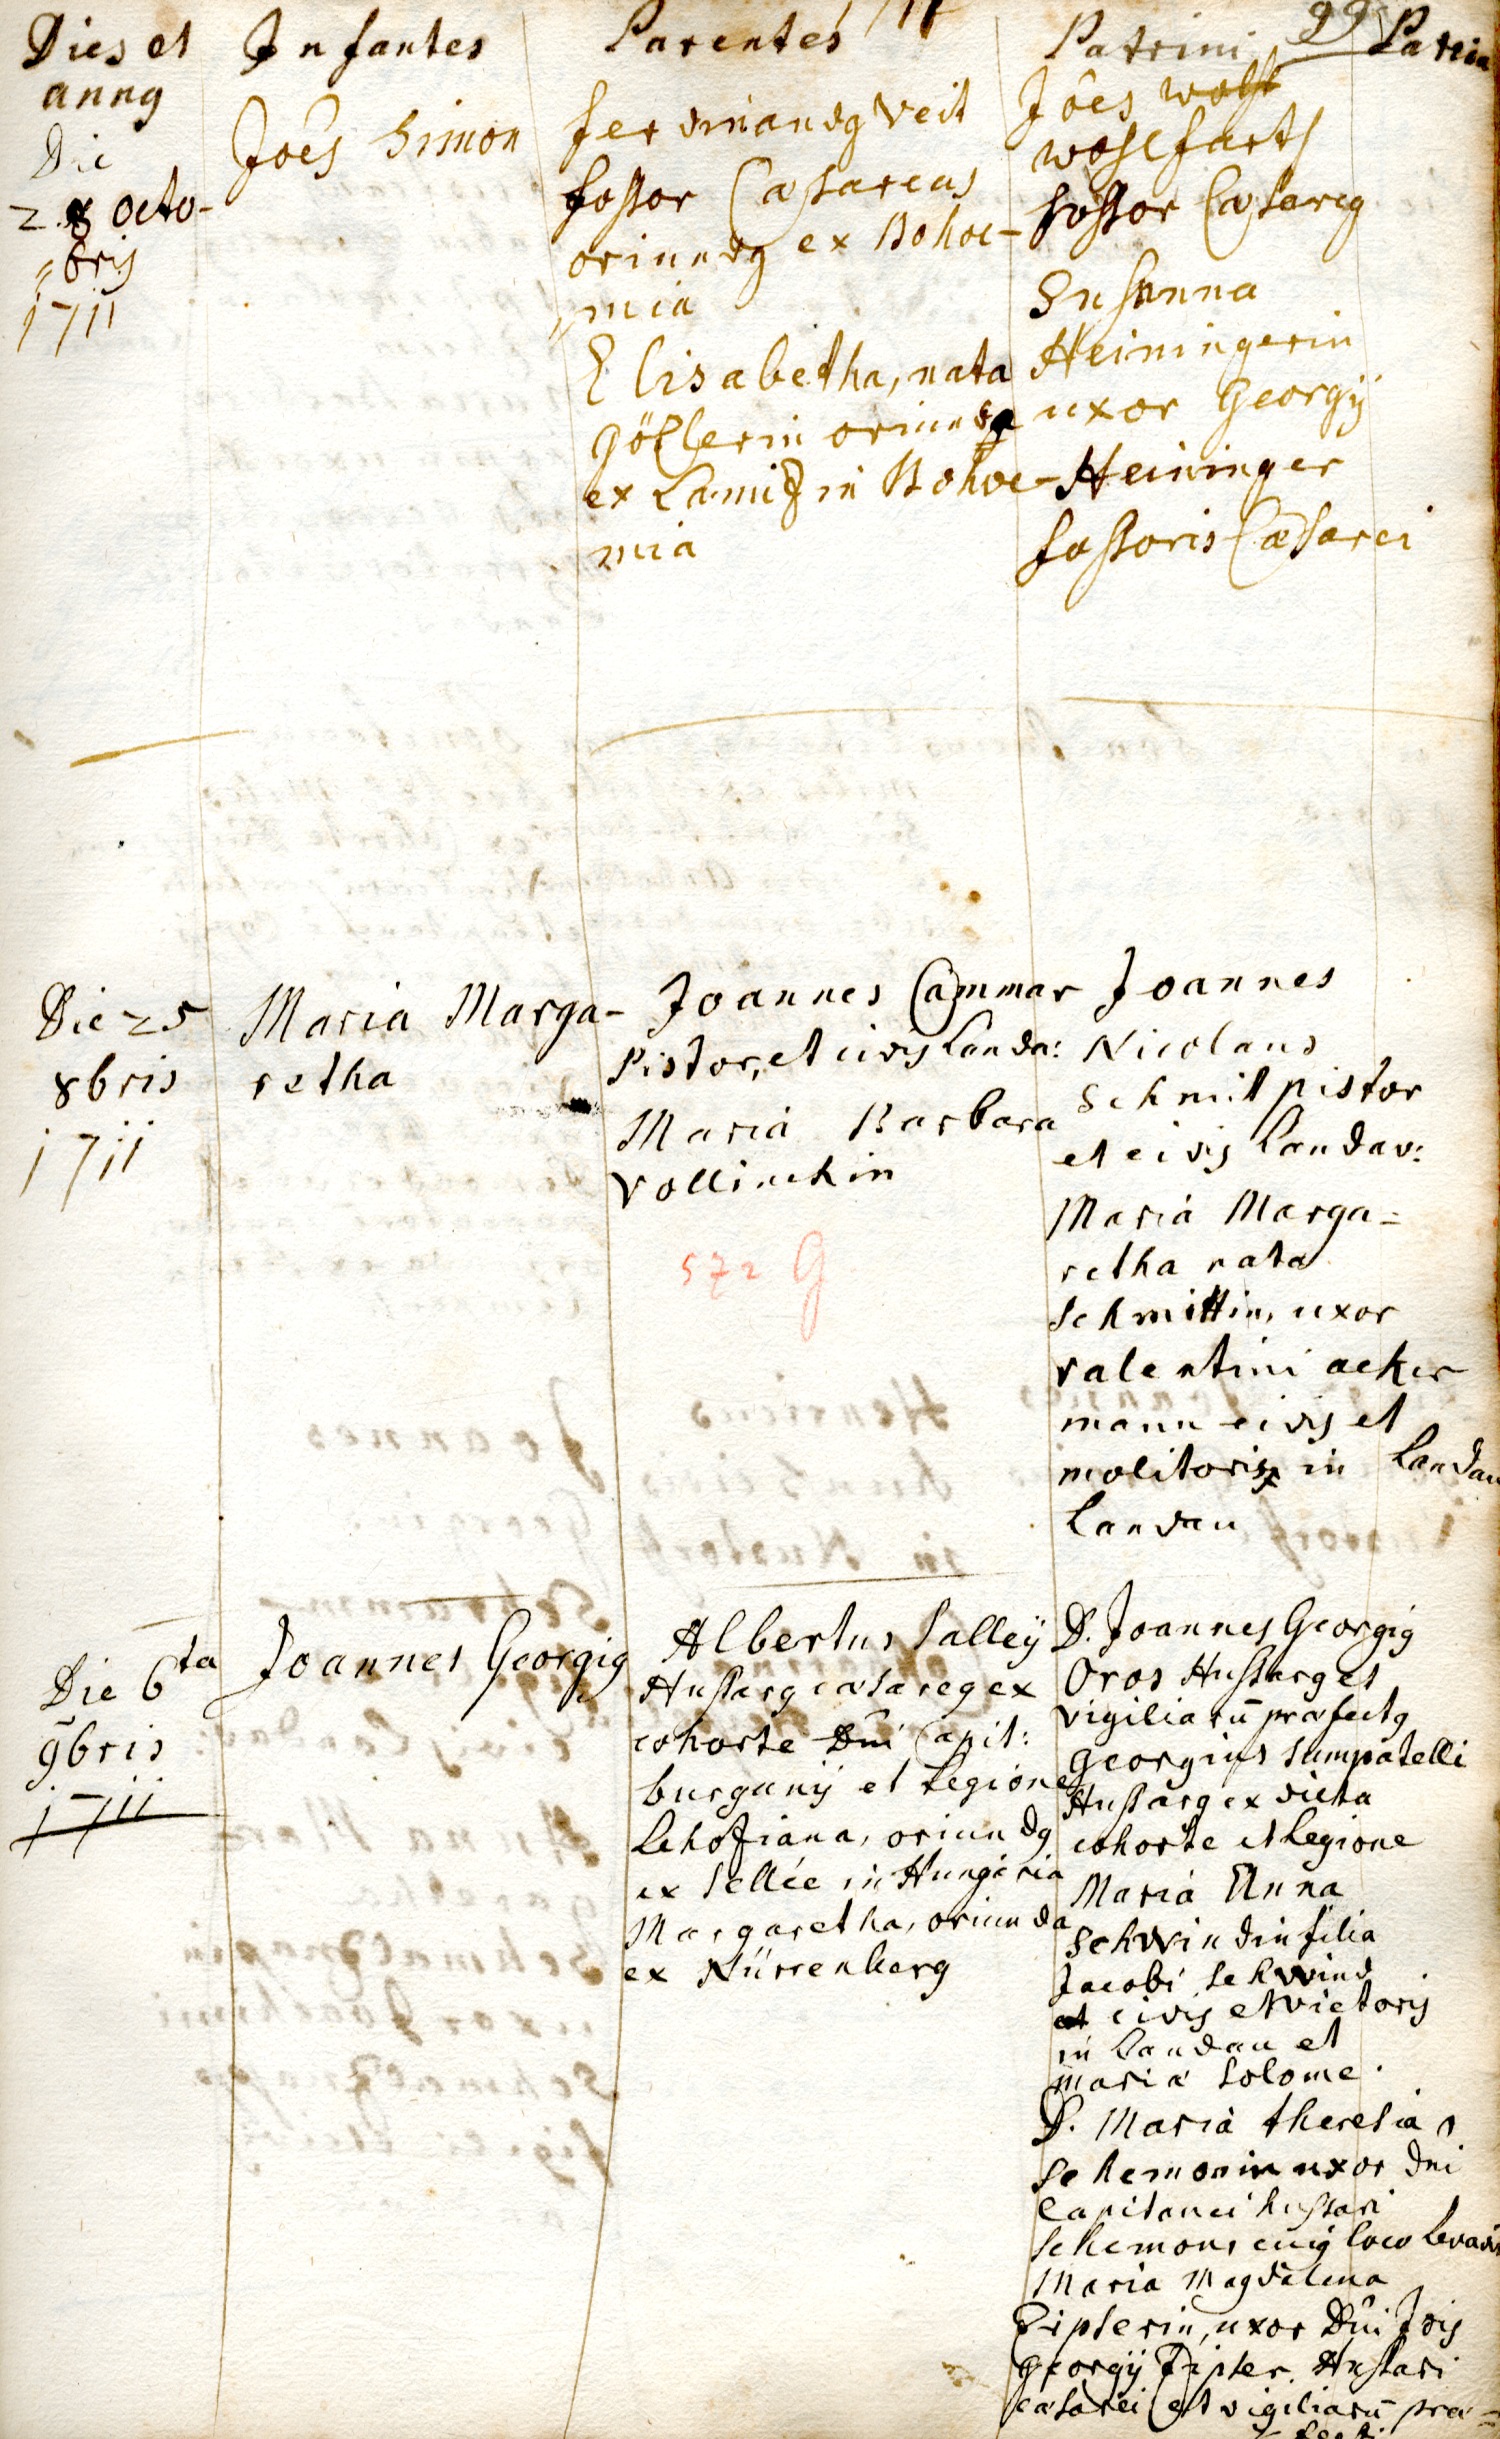 Dies et
anng
Infantes
Parentes
Patrini
99
Patrin
Die
2 8 octo-
„bris
1711
Joês Simon
ferdinandg Veit
fossor Cæsareus
oriundg ex Bohoe-
„mia
Elisabetha, nata
oriunda
ex Lamiz in Bohoe-
mia
Jôes wolf
wohlfarth
fossor Cæsareg
Susanna
Heiningerin
uxor Georgÿ
Heininger
fossoris Cæsarei
Die 25
8bris
1711
Maria Marga-
retha
Joannes Cammar
Pistor, et civis Landa:
Maria Barbara
Vollinckin
572 G
Joannes
Nicolaus
Schmit pistor
et civis Landav:
Maria Marga=
retha nata
Schmittin, uxor
valentini acker
mann civis et
molitoris in Landau
Landau
Die 6ta
9bris
1711
Joannes Georgig
Albertus Salleÿ
Hussarg cæsareg ex
cohorte Dni Capit:
burganÿ et Legione
Lehoziana, oriundg
ex Sellée in Hungaria
Margaretha, oriunda
ex Nürrenberg
D. Joannes Georgig
Oros Hussarg et
vigiliarū præfectg
Georgius Sumpatelli
Hussarg ex dicta
cohorte et Legione
Maria Anna
Schwindin filia
Jacobi Schwind
et civis et victoris
in Landau et
maria Solome.
D. Maria theresia
Schemonin uxor Dni
Capitanei hussari
Schemons cuig loco levavit
Maria Magdalena
Zipserin, uxor Dni Jois
georgÿ Zipser Hussari
cæsarei et vigiliarū præ=
fecti